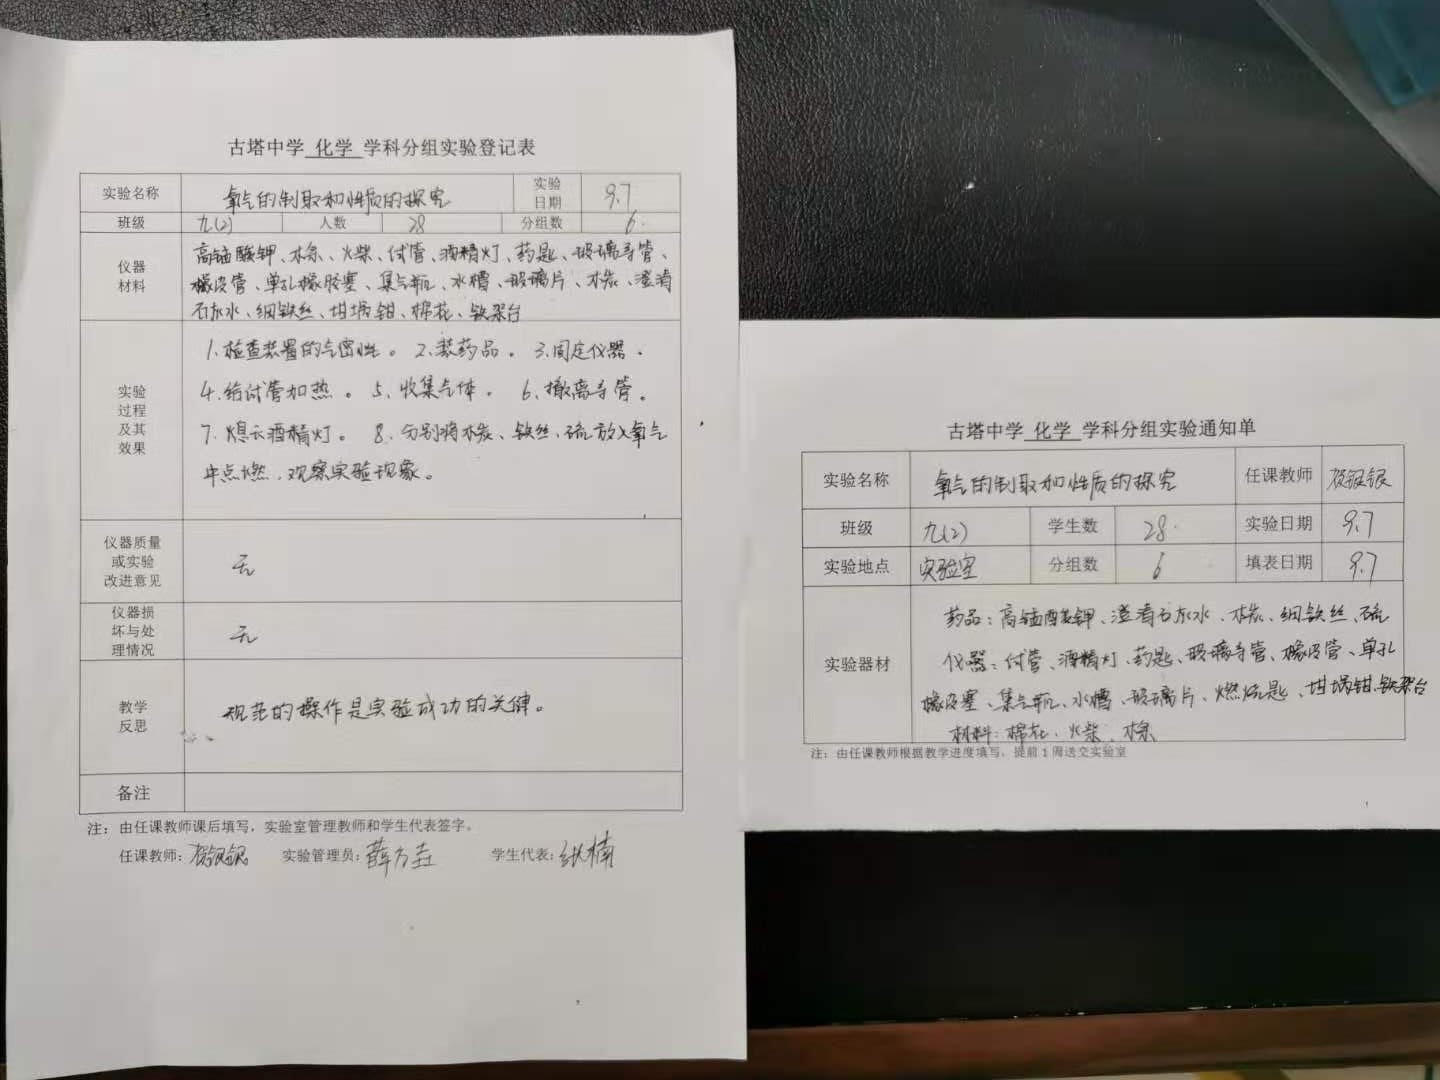 古塔中学 化学 学科分组实验登记表
实验名称 氧气的制取和性质的探究 实验日期 9.7
班级 九(2) 人数 28 分组数 6
仪器材料
高锰酸钾、木条、火柴、试管、酒精灯、药匙、玻璃导管、
橡皮管、单孔橡胶塞、集气瓶、水槽、玻璃片、木炭、澄清
石灰水、细铁丝、坩埚钳、棉花、铁架台
实验过程及其效果
1.检查装置的气密性。2.装药品。3.固定仪器.
4.给试管加热。5.收集气体。6.撤离导管。
7.熄灭酒精灯。8.分别将木炭、铁丝、硫放入氧气
中点燃,观察实验现象。
仪器质量或实验改进意见 无
仪器损坏与处理情况 无
教学反思 规范的操作是实验成功的关键。
备注
注:由任课教师课后填写,实验室管理教师和学生代表签字。
任课教师: 实验管理员: 学生代表:
古塔中学 化学 学科分组实验通知单
实验名称 氧气的制取和性质的探究 任课教师
班级 九(2) 学生数 28. 实验日期 9.7
实验地点 实验室 分组数 6 填表日期 9.7
实验器材
药品:高锰酸钾、澄清石灰水、木炭、细铁丝、硫
仪器:试管、酒精灯、药匙、玻璃导管、橡皮管、单孔
橡皮塞、集气瓶、水槽、玻璃片、燃烧匙、坩埚钳、铁架台
材料:棉花、火柴、木条
注:由任课教师根据教学进度填写,提前1周送交实验室